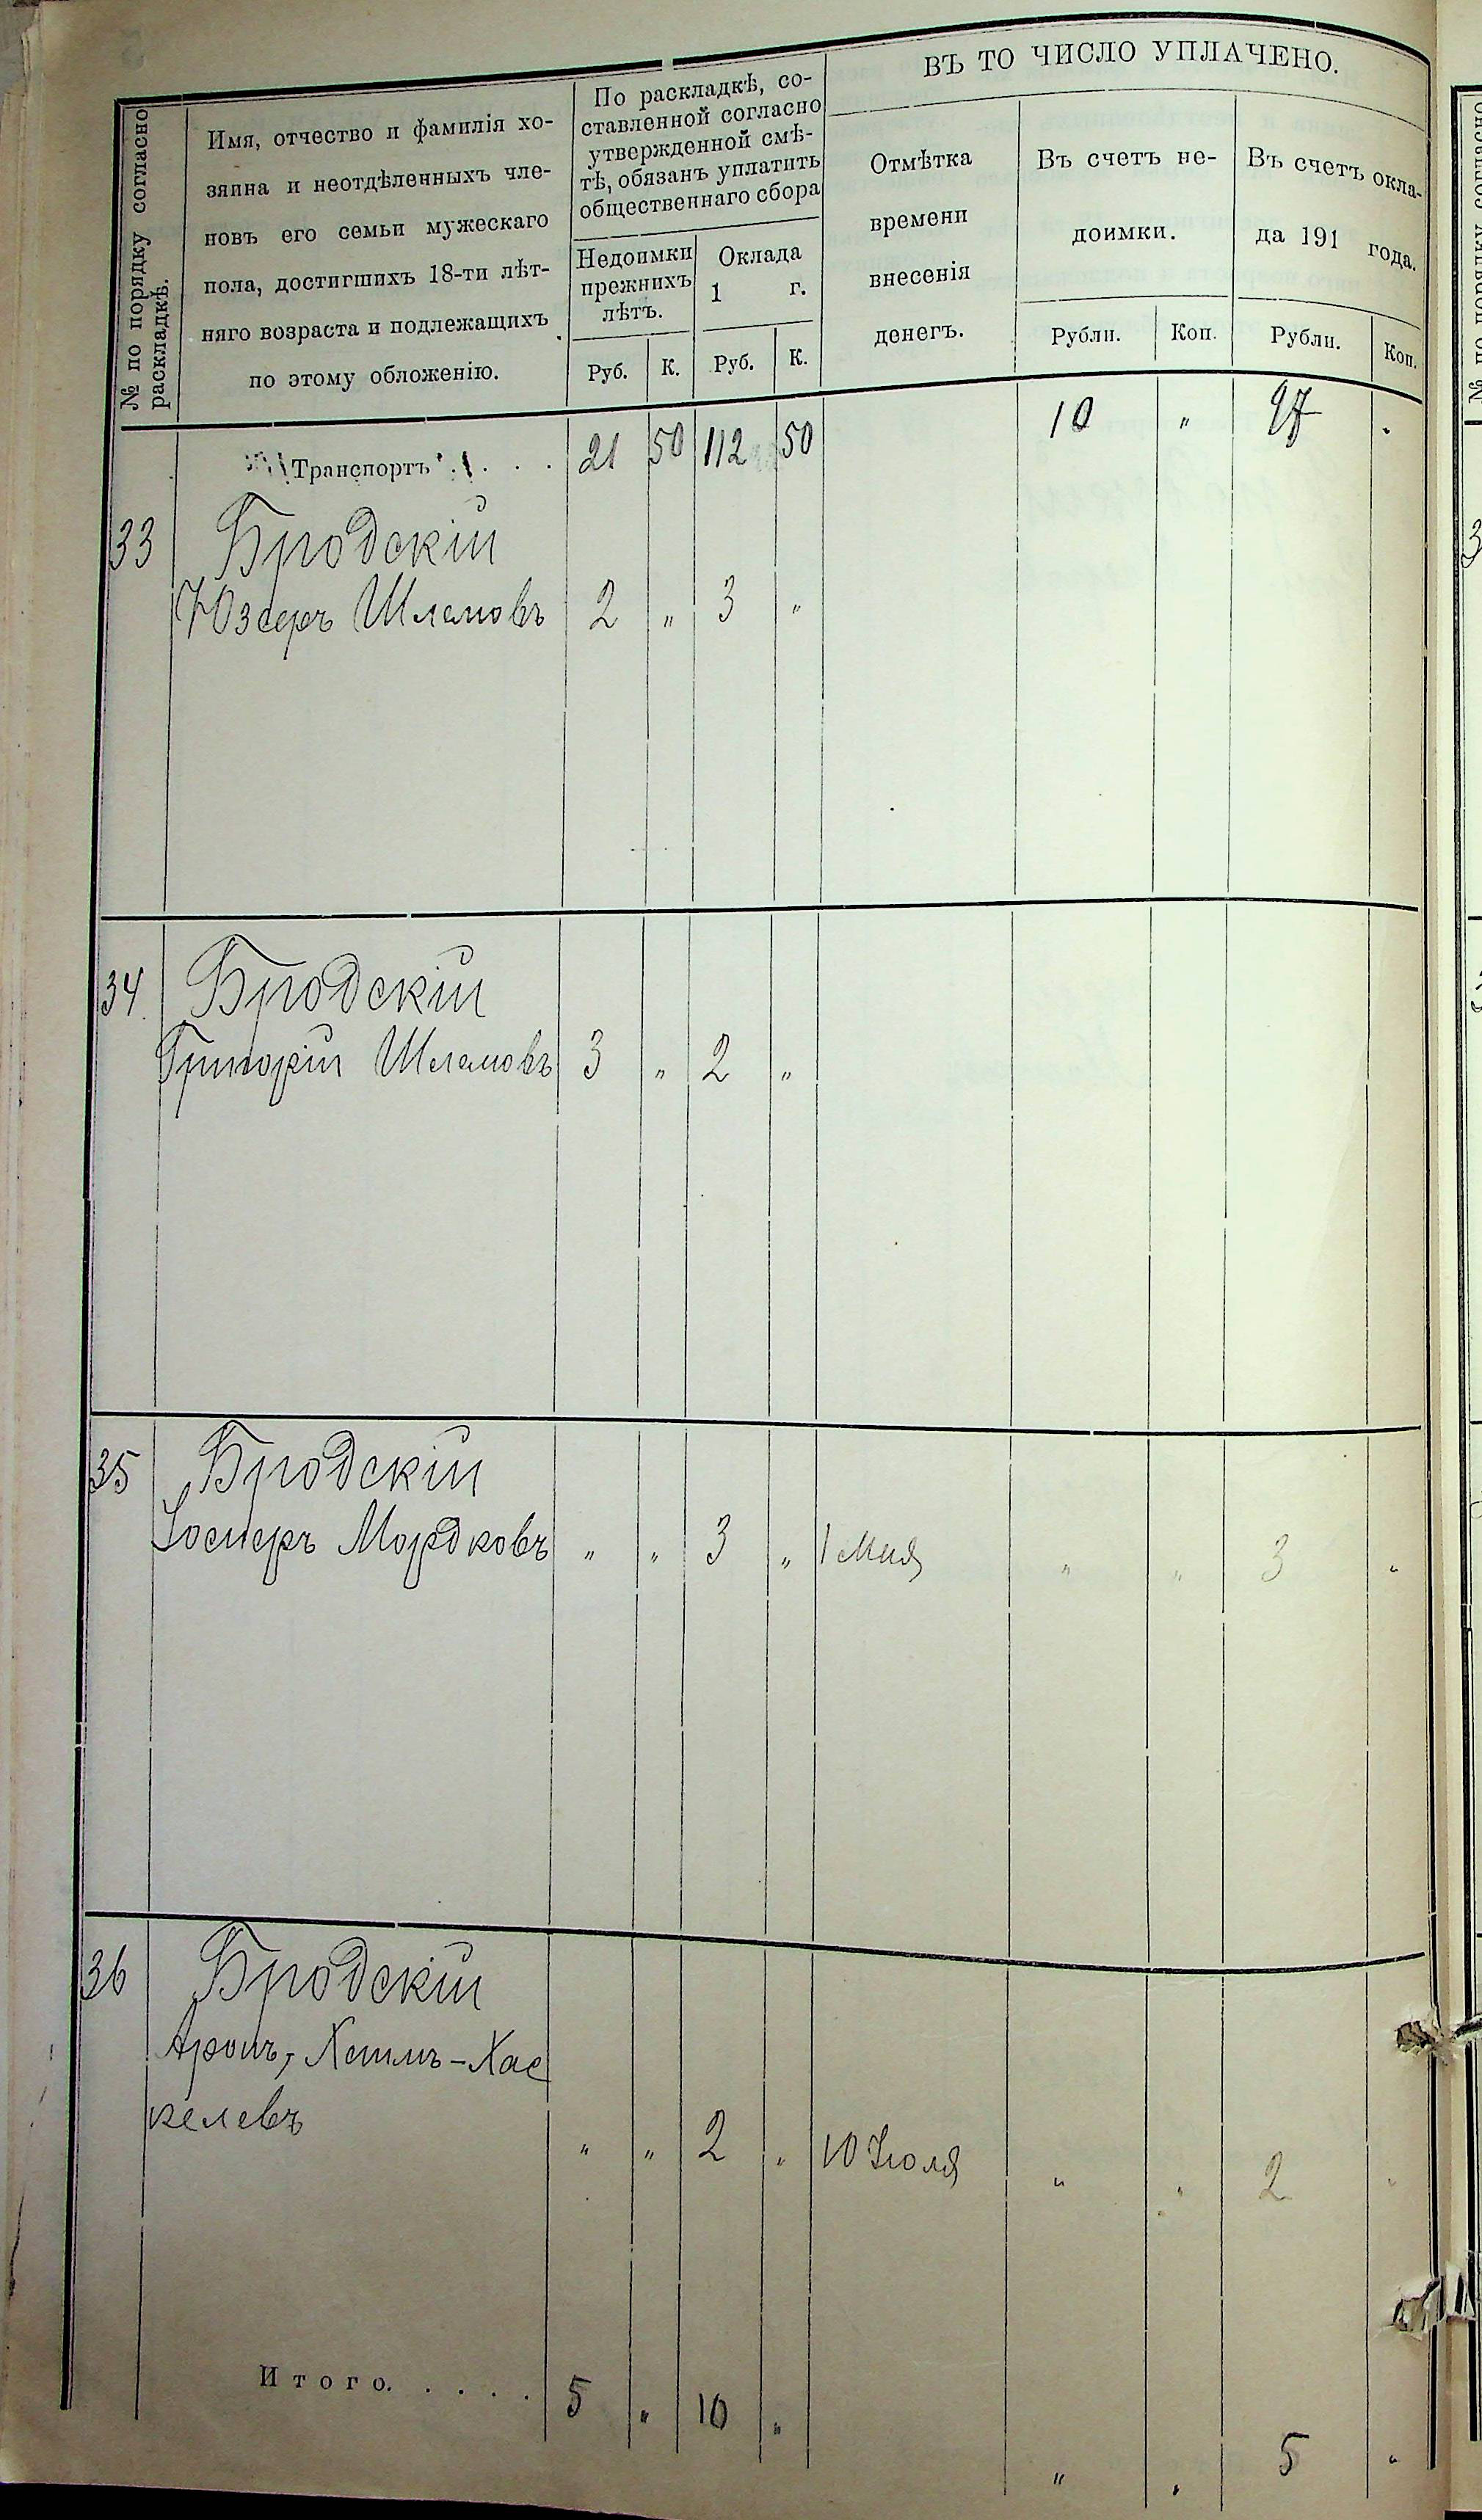 № по порядку согласно
раскладкѣ.
Имя, отчество и фамилія хо-
зяина и неотдѣленныхъ чле-
новъ его семьи мужескаго
пола, достигшихъ 18-ти лѣт-
няго возраста и подлежащихъ
по этому обложенію.
По раскладкѣ, со-
ставленной согласно
утвержденной смѣ-
тѣ, обязанъ уплатить
общественнаго сбора
Недоимки
прежнихъ
лѣтъ.
Оклада
1 г.
Руб. К. Руб. К.
ВЪ ТО ЧИСЛО УПЛАЧЕНО.
Отмѣтка
времени
внесенія
денегъ.
Въ счетъ не-
доимки.
Рубли. Коп.
Въ счетъ окла-
да 191 года.
Рубли. Коп.
Транспортъ . . . 21 50 112 50 10 „ 97 „
33 Бродскій
Юзеръ Шлемовъ 2 „ 3 „
34 Бродскій
Григорій Шлемовъ 3 „ 2 „
35 Бродскій
Мордковъ „ „ 3 „ 1 Мая „ „ 3 „
36 Бродскій
Аронъ, Хаимъ-Хас
келевъ
„ „ 2 „ 10 Іюля „ „ 2 „
Итого. . . . . 5 „ 10 „ „ „ 5 „